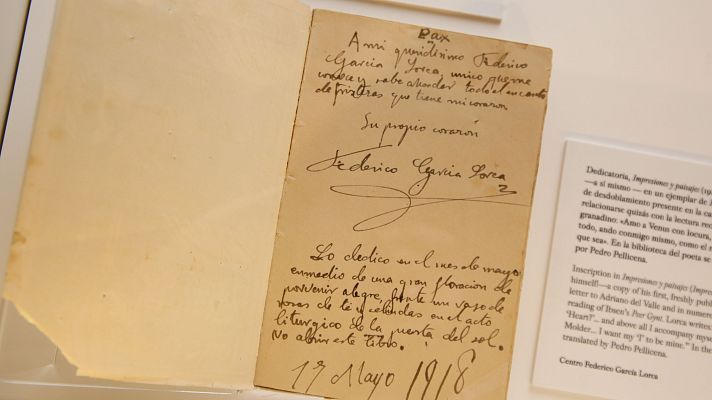 Pax
A mi queridisimo Federico
Garcia Lorca, unico que me
conoce y sabe ahondar todo el encanto
de tristezas que tiene mi corazon
Su propio corazón
Federico Garcia Lorca
Lo dedico en el mes de mayo
enmedio de una gran floracion de
porvenir alegre, frente un vaso de
rosas de te y celindas en el acto
liturgico de la puesta del sol.
No abrir este libro.
17 Mayo 1918
Dedicatoria, Impresiones y paisajes (19
—a sí mismo — en un ejemplar de
de desdoblamiento presente en la ca
relacionarse quizás con la lectura rec
granadino: «Amo a Venus con locura,
todo, ando conmigo mismo, como el
que sea». En la biblioteca del poeta se
por Pedro Pellicena.
Inscription in Impresiones y paisajes (Impre
himself—a copy of his first, freshly publi
letter to Adriano del Valle and in numero
reading of Ibsen's Peer Gynt. Lorca writes:
'Heart?'... and above all I accompany mys
Molder... I want my 'I' to be mine." In the
translated by Pedro Pellicena.
Centro Federico García Lorca